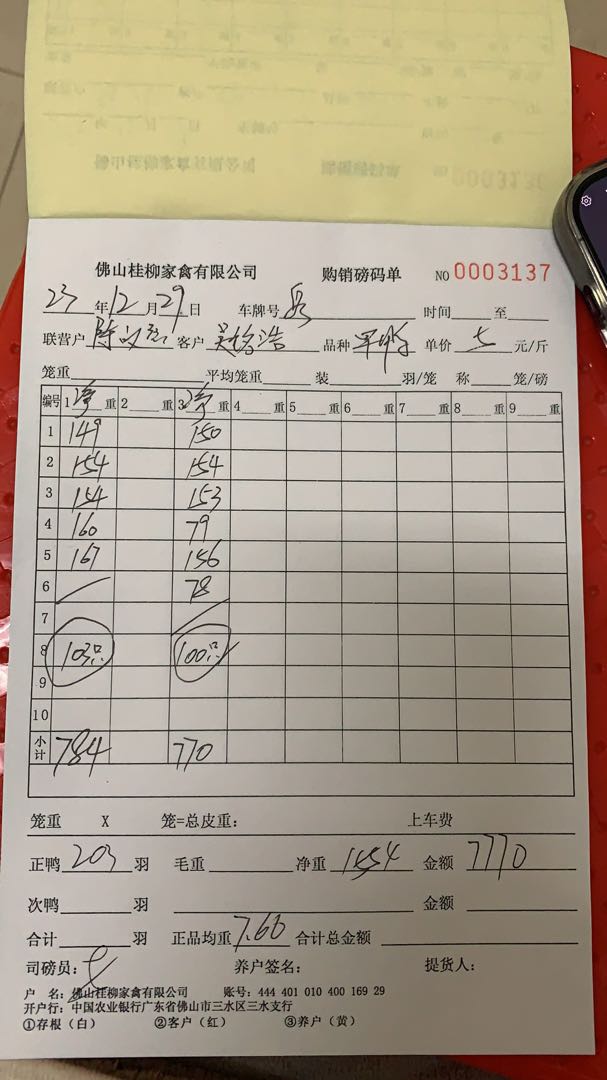 佛山桂柳家禽有限公司 购销磅码单 NO 0003137
23年12月29日 车牌号 时间 至
联营户 陈 客户 吴 浩 品种 单价 5 元/斤
笼重 平均笼重 装 羽/笼 称 笼/磅
编号 1净重 2重 3净重 4重 5重 6重 7重 8重 9重
1 149 150
2 154 154
3 154 153
4 160 79
5 167 156
6 78
7
8 103只 100只
9
10
小计 784 770
笼重 X 笼=总皮重: 上车费
正鸭 203 羽 毛重 净重 1554 金额 7770
次鸭 羽 金额
合计 羽 正品均重 7.66 合计总金额
司磅员: 养户签名: 提货人:
户 名: 佛山桂柳家禽有限公司 账号: 444 401 010 400 169 29
开户行: 中国农业银行广东省佛山市三水区三水支行
①存根(白) ②客户(红) ③养户(黄)